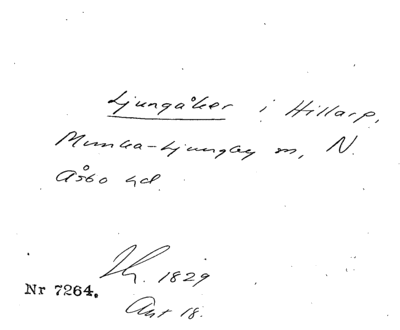 Ljungåker i Hillarp,
Munka-Ljungby sn, N.
Åsbo hd.
Th. 1829
Nr 7264.
Ant 18.